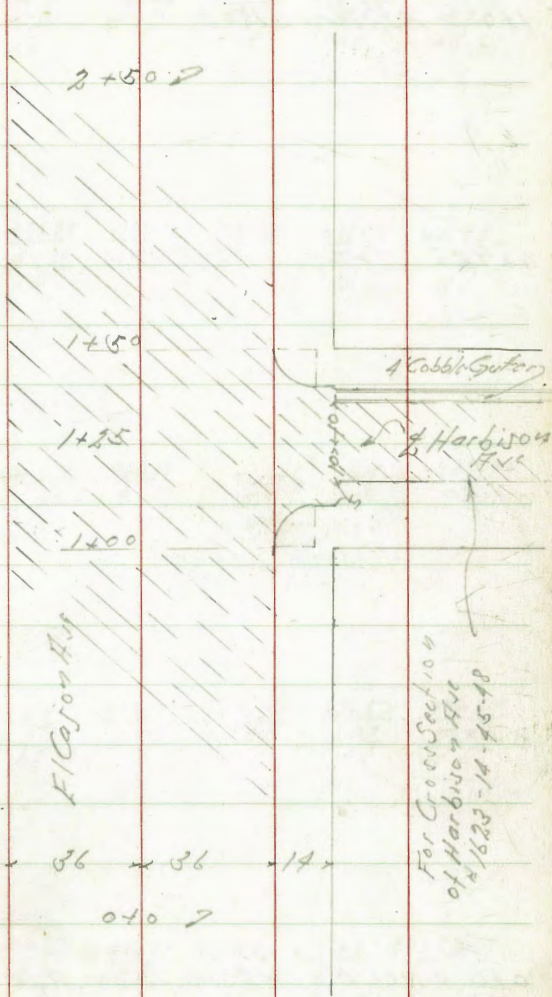 2+50
1+50
4' Cobble Gutter
1+25
℄ Harbison
Ave
1+00
El Cajon Ave
For Cross Section
of Harbison Ave
1623-14-45-48
36 36 14
0+0